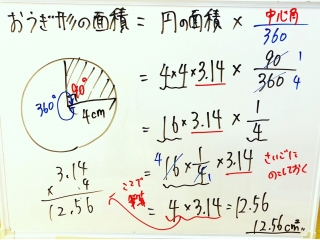 おうぎ形の面積 = 円の面積 × 中心角/360
= 4×4×3.14 × 90/360 1 4
= 16×3.14 × 1/4
= 4 16×1/4×3.14 さいごにのこしておく
= 4×3.14 = 12.56
12.56cm²
360° 90°
4cm
3.14
× 4
12.56
ここで